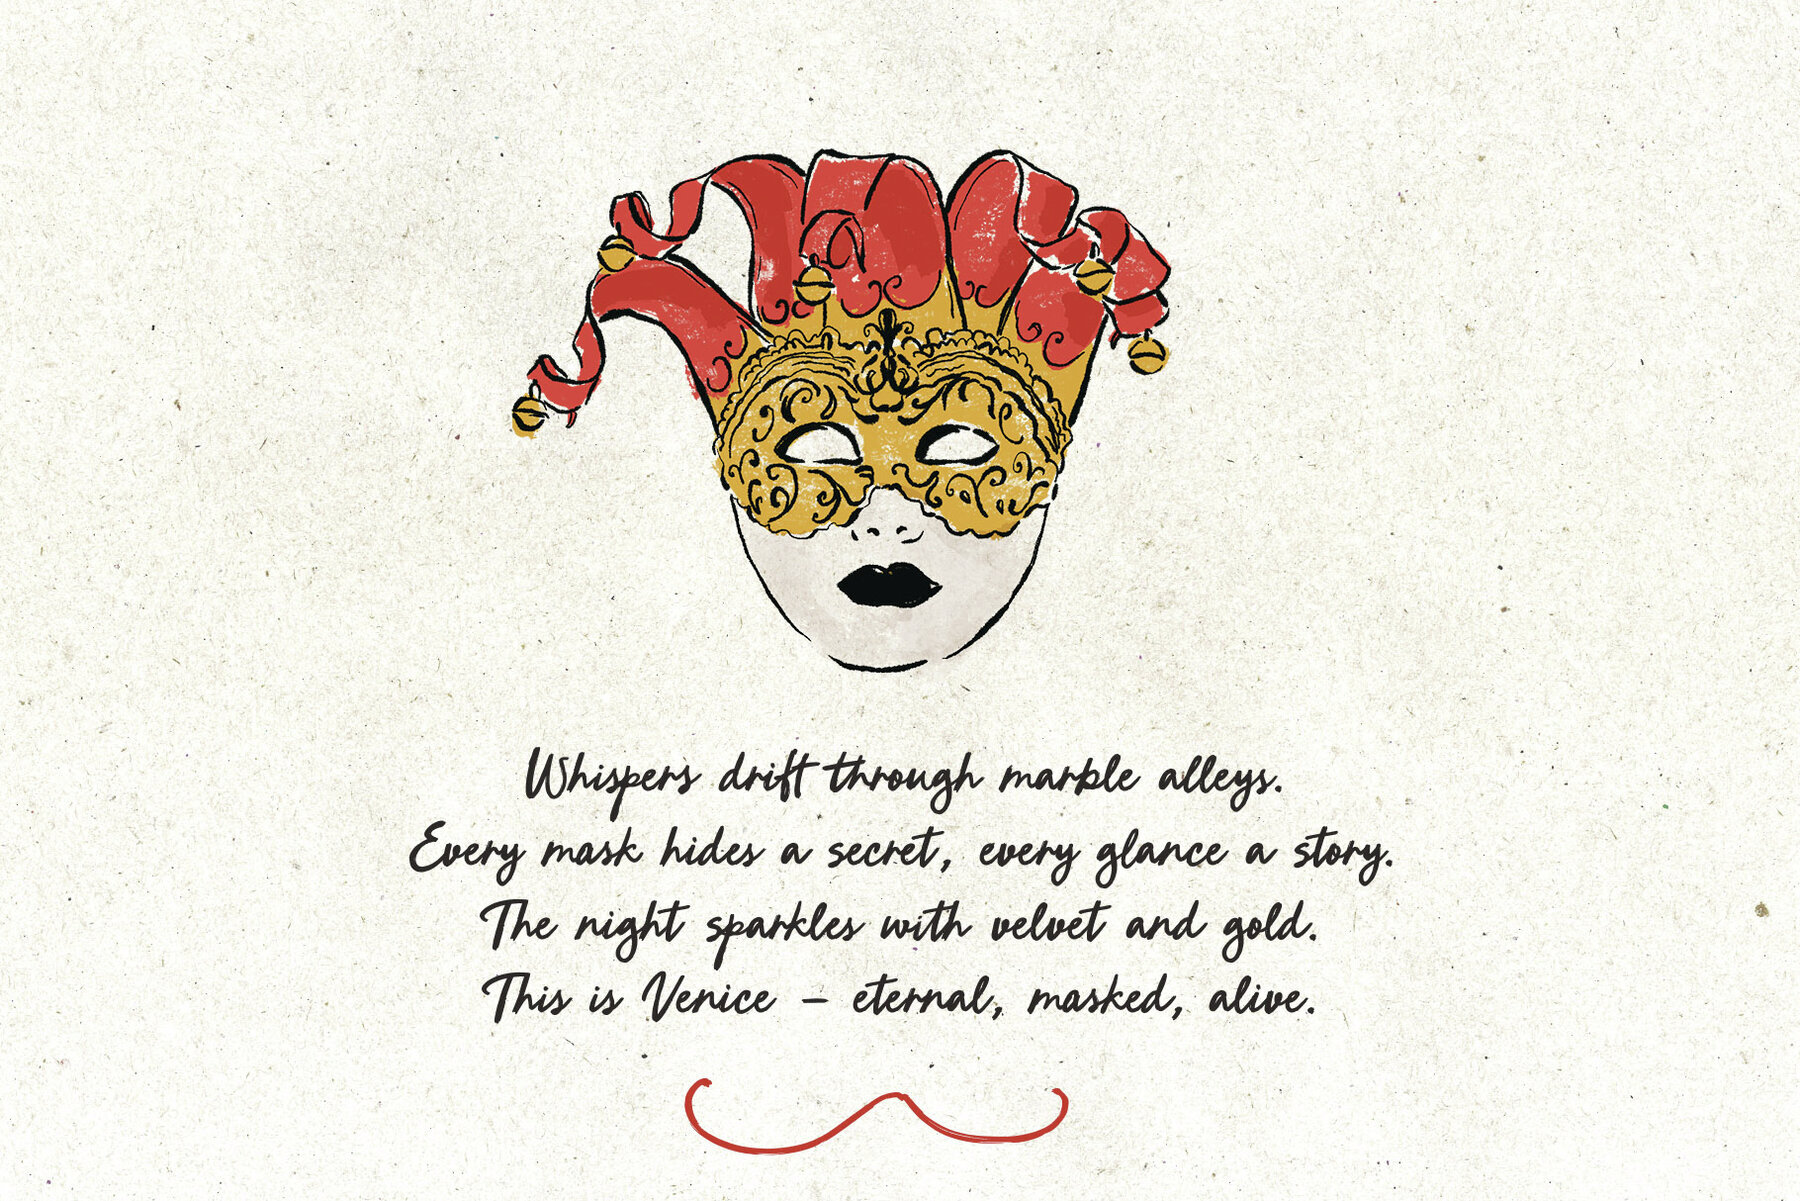 Whispers drift through marble alleys.
Every mask hides a secret, every glance a story.
The night sparkles with velvet and gold.
This is Venice – eternal, masked, alive.